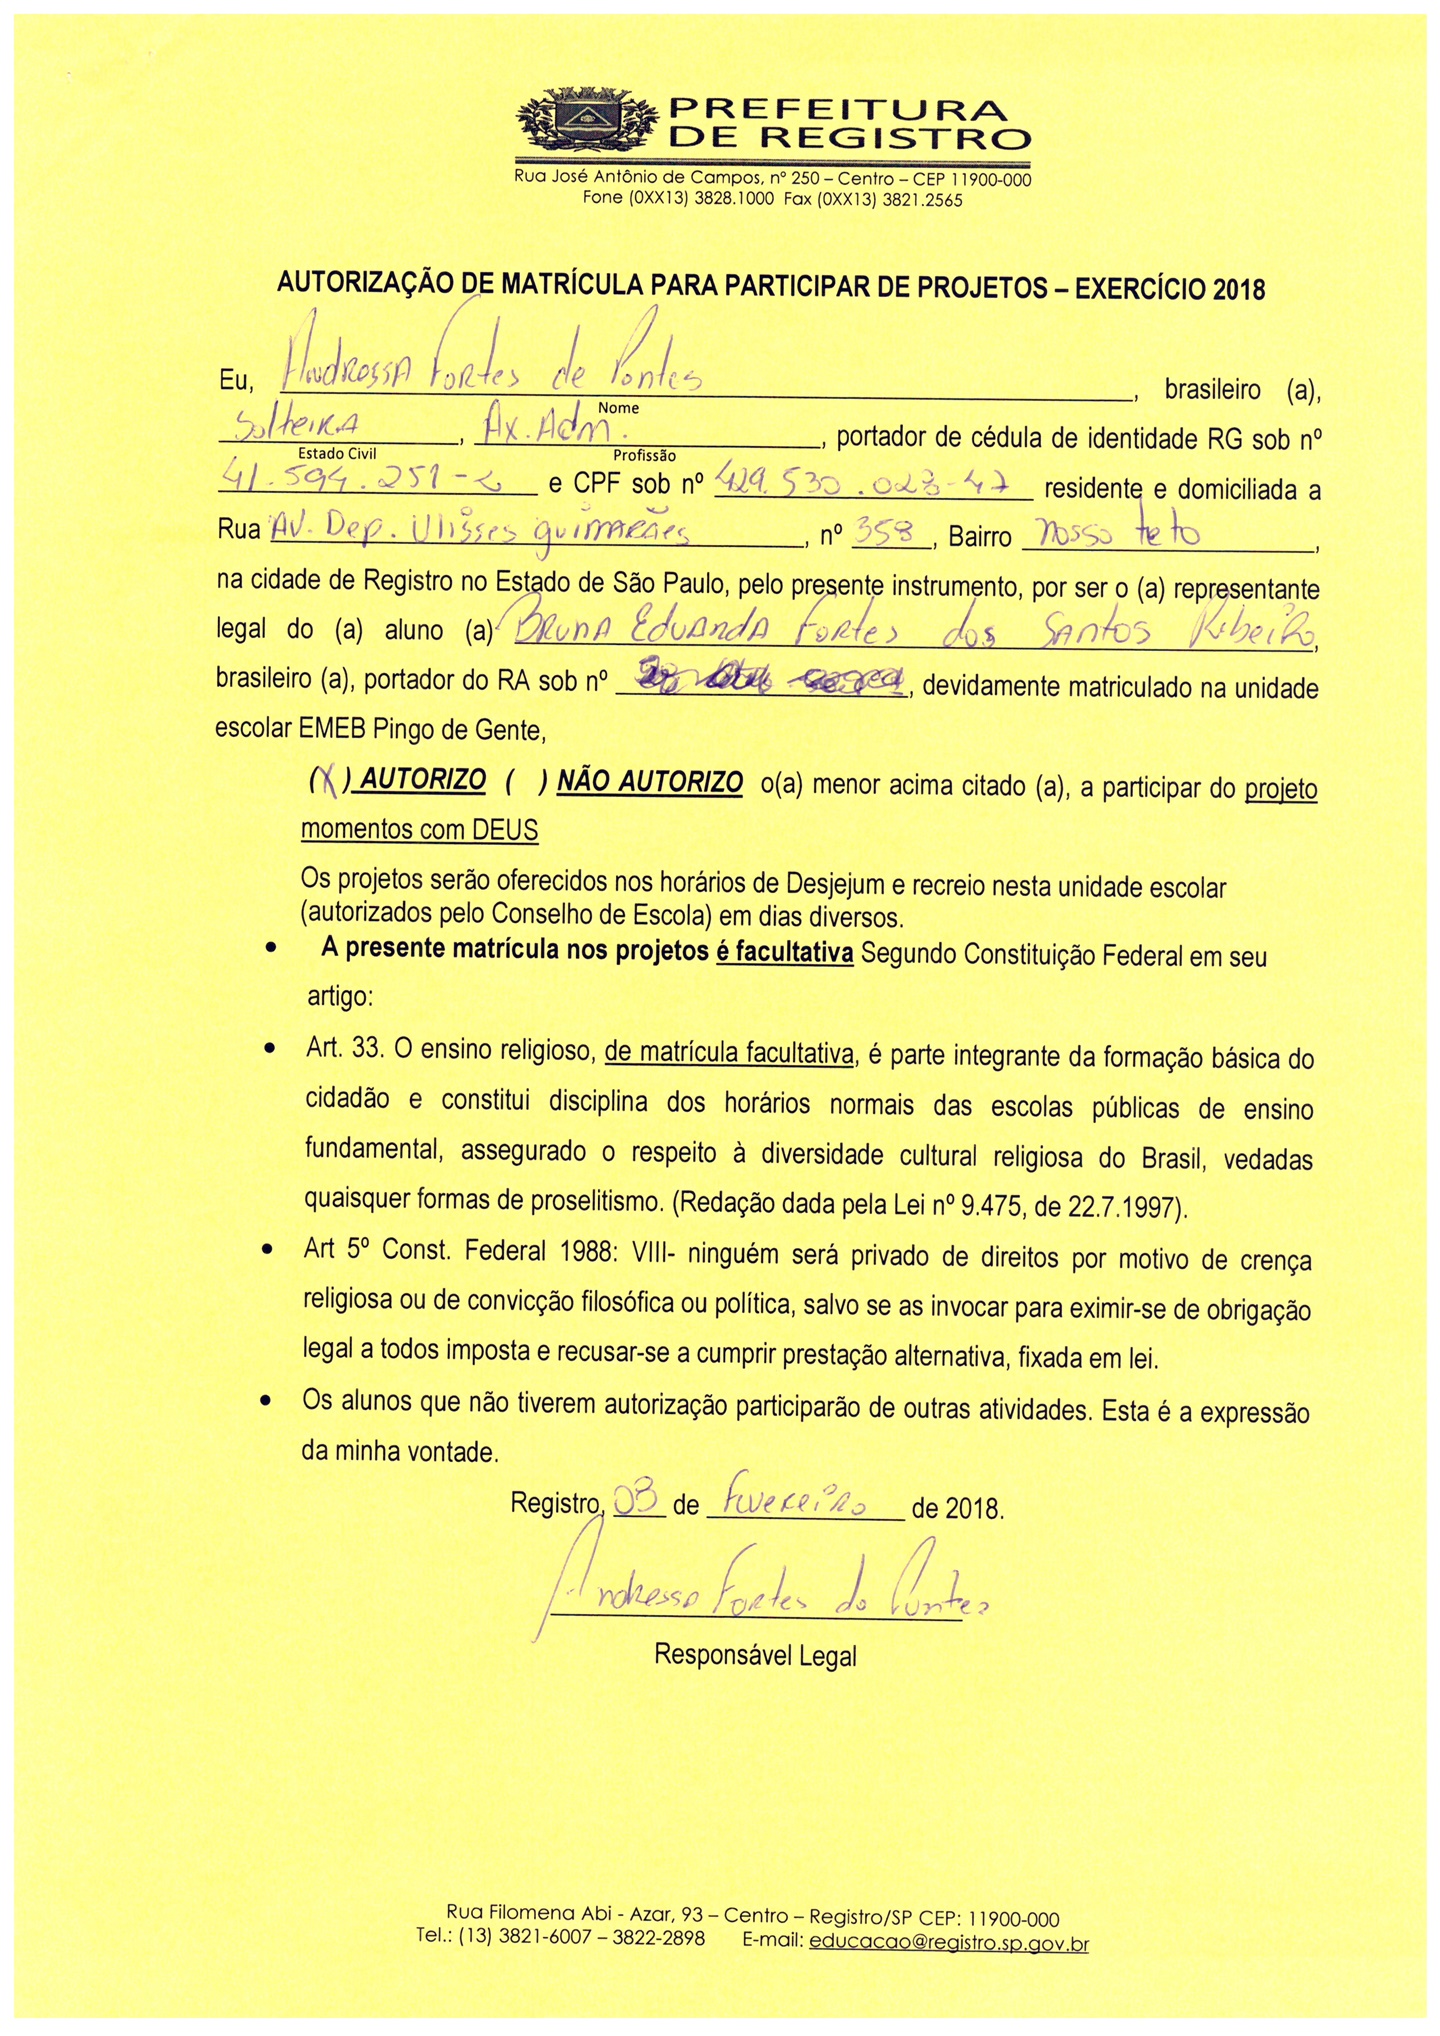 PREFEITURA
DE REGISTRO
Rua José Antônio de Campos, nº 250 – Centro – CEP 11900-000
Fone (0XX13) 3828.1000 Fax (0XX13) 3821.2565
AUTORIZAÇÃO DE MATRÍCULA PARA PARTICIPAR DE PROJETOS – EXERCÍCIO 2018
Eu, Andressa Fortes de Pontes, brasileiro (a),
Nome
Solteira, Ax. Adm., portador de cédula de identidade RG sob nº
Estado Civil Profissão
41.594.251-2 e CPF sob nº 429.530.028-47 residente e domiciliada a
Rua Av. Dep. Ulisses Guimarães, nº 358, Bairro Nosso teto,
na cidade de Registro no Estado de São Paulo, pelo presente instrumento, por ser o (a) representante
legal do (a) aluno (a) Bruna Eduarda Fortes dos Santos Ribeiro,
brasileiro (a), portador do RA sob nº , devidamente matriculado na unidade
escolar EMEB Pingo de Gente,
(X) AUTORIZO ( ) NÃO AUTORIZO o(a) menor acima citado (a), a participar do projeto
momentos com DEUS
Os projetos serão oferecidos nos horários de Desjejum e recreio nesta unidade escolar
(autorizados pelo Conselho de Escola) em dias diversos.
• A presente matrícula nos projetos é facultativa Segundo Constituição Federal em seu
artigo:
• Art. 33. O ensino religioso, de matrícula facultativa, é parte integrante da formação básica do
cidadão e constitui disciplina dos horários normais das escolas públicas de ensino
fundamental, assegurado o respeito à diversidade cultural religiosa do Brasil, vedadas
quaisquer formas de proselitismo. (Redação dada pela Lei nº 9.475, de 22.7.1997).
• Art 5º Const. Federal 1988: VIII- ninguém será privado de direitos por motivo de crença
religiosa ou de convicção filosófica ou política, salvo se as invocar para eximir-se de obrigação
legal a todos imposta e recusar-se a cumprir prestação alternativa, fixada em lei.
• Os alunos que não tiverem autorização participarão de outras atividades. Esta é a expressão
da minha vontade.
Registro, 03 de Fevereiro de 2018.
Andressa Fortes de Pontes
Responsável Legal
Rua Filomena Abi - Azar, 93 – Centro – Registro/SP CEP: 11900-000
Tel.: (13) 3821-6007 – 3822-2898 E-mail: educacao@registro.sp.gov.br